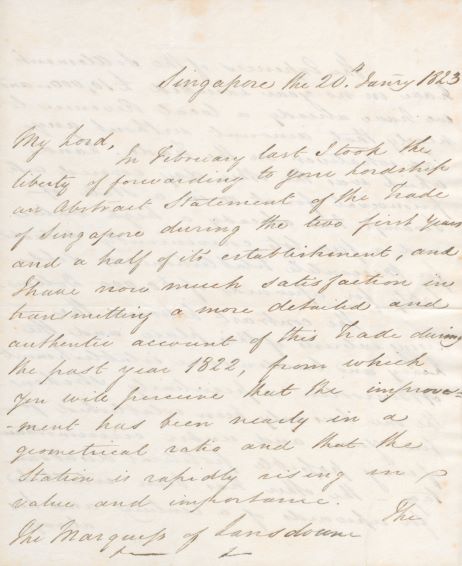 Singapore the 20th. Janry 1823
My Lord,
In February last I took the
liberty of forwarding to your Lordship
an Abstract Statement of the Trade
of Singapore during the two first years
and a half of its establishment, and
I have now much satisfaction in
transmitting a more detailed and
authentic account of this Trade during
the past year 1822, from which
you will perceive that the improve=
-ment has been nearly in a
geometrical ratio and that the
Station is rapidly rising in
value and importance.
The
The Marquess of Lansdowne